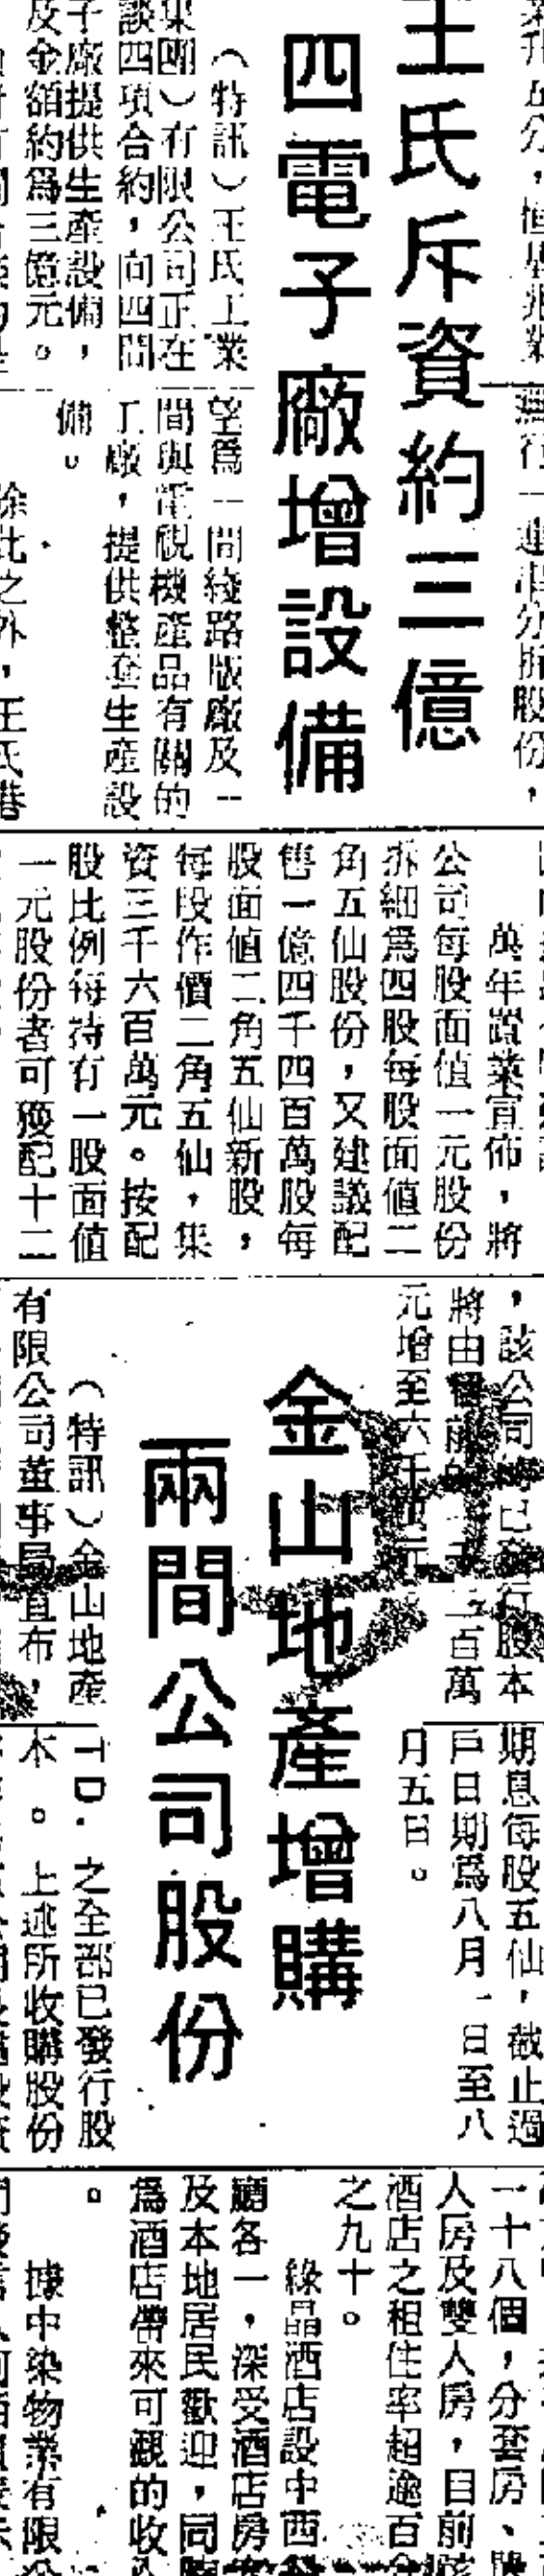 業升五分，恒基兆業
王氏斥資約三億
四電子廠增設備
（特訊）王氏工業
集團）有限公司正在
談四項合約，向四間
子廠提供生產設備，
及金額約爲三億元。
股份，
望爲一間綫路版廠及一
間與電視機產品有關的
工廠，提供整套生產設
備。
除此之外，王氏港
萬年置業宣佈，將
公司每股面值一元股份
拆細爲四股每股面值二
角五仙股份，又建議配
售一億四千四百萬股每
股面值二角五仙新股，
每股作價二角五仙，集
資三千六百萬元。按配
股比例每持有一股面值
一元股份者可獲配十二
，該公司已發行股本
將由二百萬
元增至六千元
期息每股五仙，截止過
戶日期爲八月一日至八
月五日。
金山地產增購
兩間公司股份
（特訊）金山地產
有限公司董事局宣布，
TD.之全部已發行股
本。上述所收購股份
一十八個，分套房、
人房及雙人房，目前該
酒店之租住率超逾百分
之九十。
綠晶酒店設中西餐
廳各一，深受酒店房客
及本地居民歡迎，同時
爲酒店帶來可觀的收入
。
據中染物業有限公